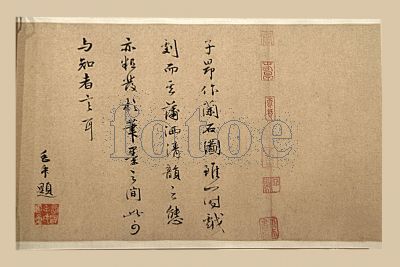 子昂作蘭石圖雖一時戲
劇而其蕭洒清韻之態
亦粗發於筆墨之間此可
与知者言耳
題
fotoe